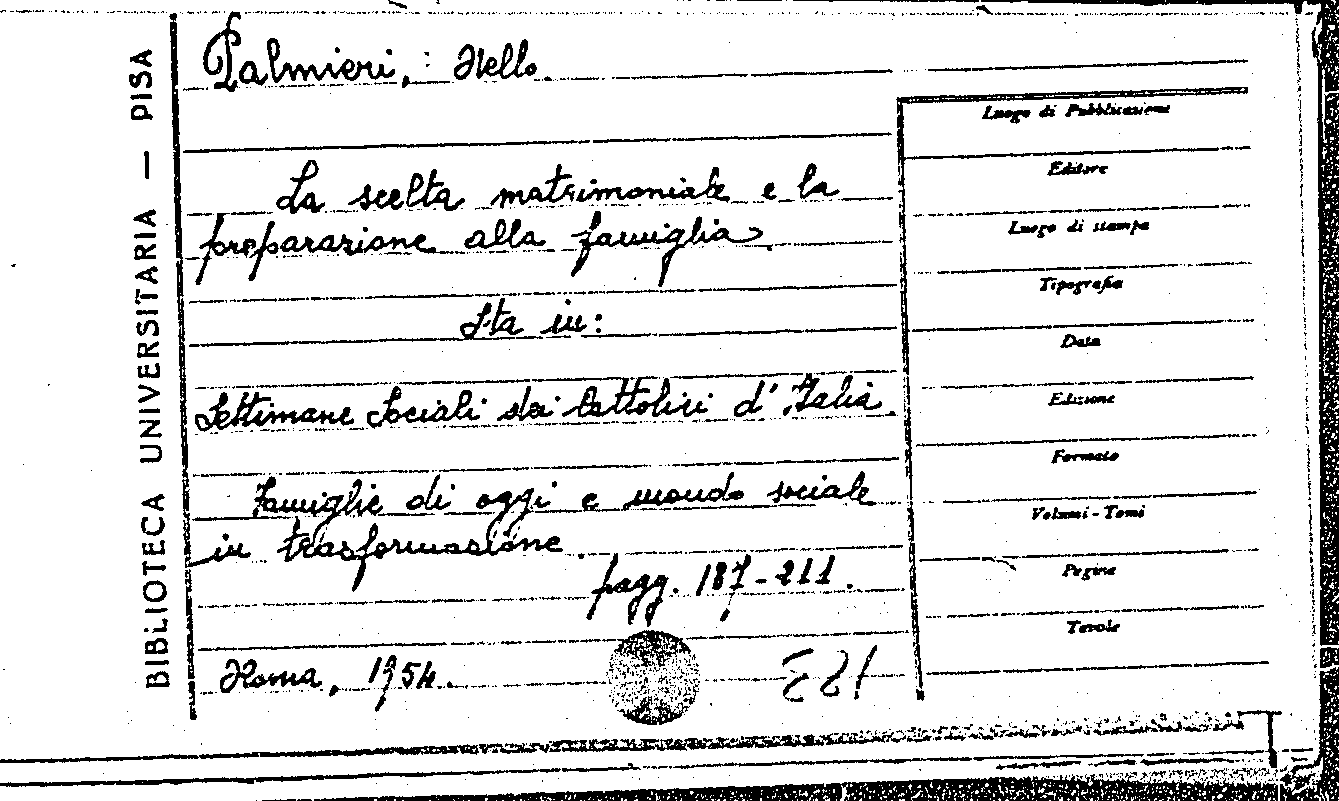 BIBLIOTECA UNIVERSITARIA — PISA
Palmieri, Nello.
La scelta matrimoniale e la
preparazione alla famiglia.
Sta in:
Settimane Sociali dei Cattolici d'Italia.
Famiglie di oggi e mondo sociale
in trasformazione.
pagg. 187-211.
Roma, 1954.
Luogo di Pubblicazione
Editore
Luogo di stampa
Tipografia
Data
Edizione
Formato
Volumi - Tomi
Pagine
Tavole